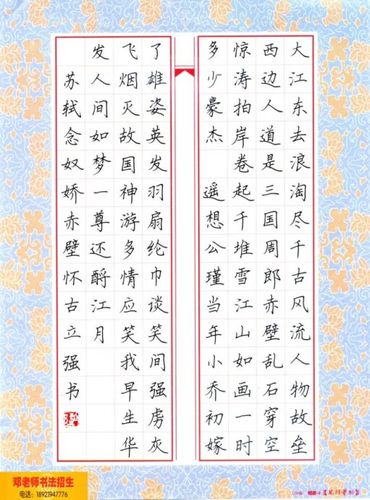 大江东去浪淘尽千古风流人物故垒
西边人道是三国周郎赤壁乱石穿空
惊涛拍岸卷起千堆雪江山如画一时
多少豪杰 遥想公瑾当年小乔初嫁
了雄姿英发羽扇纶巾谈笑间强虏灰
飞烟灭故国神游多情应笑我早生华
发人间如梦一尊还酹江月
苏轼念奴娇赤壁怀古立强书
邓老师书法招生
电话: 18927947776